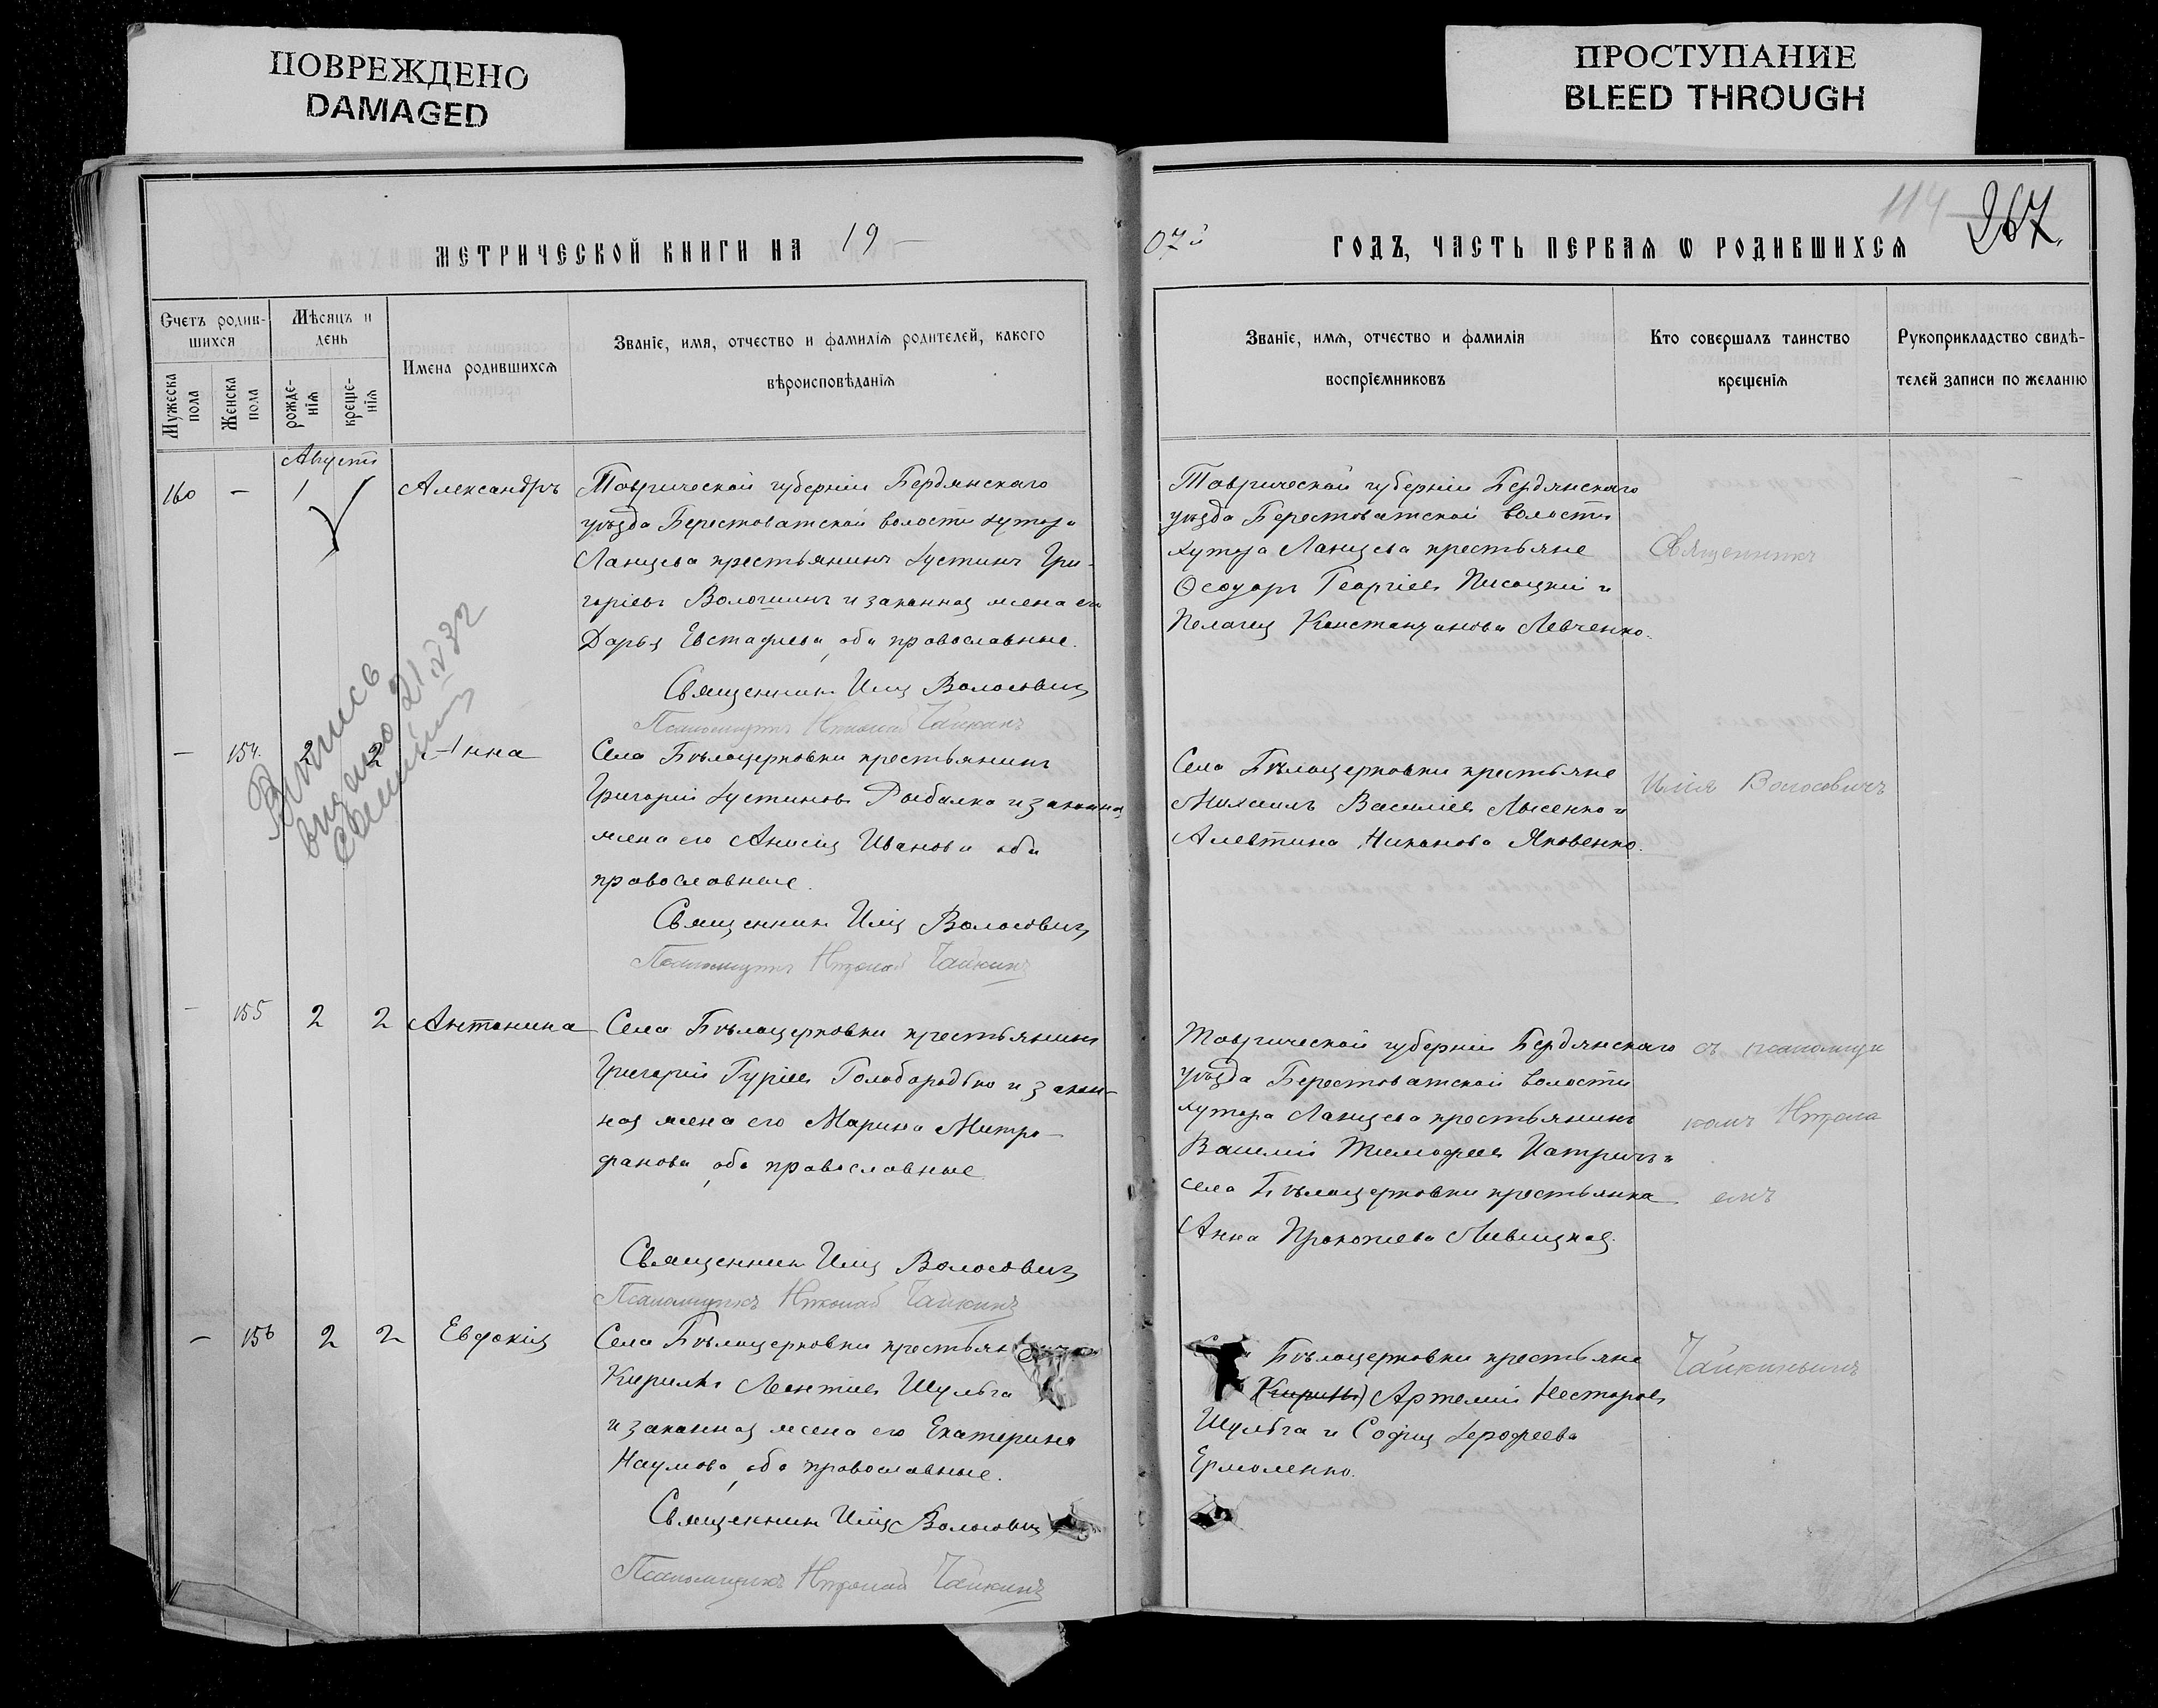 ПОВРЕЖДЕНО
DAMAGED
ПРОСТУПАНИЕ
BLEED THROUGH
МЕТРИЧЕСКОЙ КНИГИ НА 19
07й ГОДЪ, ЧАСТЬ ПЕРВАЯ Ѡ РОДИВШИХСЯ
114
267
Счетъ родив-
шихся
Мѣсяцъ и
день
Мужеска
пола
Женска
пола
рожде-
нія
креще-
нія
Имена родившихся
Званіе, имя, отчество и фамилія родителей, какого
вѣроисповѣданія
Званіе, имя, отчество и фамилія
воспріемниковъ
Кто совершалъ таинство
крещенія
Рукоприкладство свидѣ-
телей записи по желанію
Августъ
160 — 1 Александръ
Таврической губерніи Бердянскаго
уѣзда Берестоватской волости хутора
Ланцева крестьянинъ Іустинъ Гри-
горіевъ Волошинъ и законная жена его
Дарья Евстафіева, оба православные.
Священникъ Илія Волосовичъ
Псаломщикъ Николай Чайкинъ
Таврической губерніи Бердянскаго
уѣзда Берестоватской волости
хутора Ланцева крестьяне
Ѳеодоръ Георгіевъ Писоцкій и
Пелагея Константинова Левченко.
Священникъ
Выпись
выдано 21
— 154. 2 2 Анна
Села Бѣлоцерковки крестьянинъ
Григорій Іустиновъ Рыбалка и законная
жена его Анисія Иванова оба
православные.
Священникъ Илія Волосовичъ
Псаломщикъ Николай Чайкинъ
Села Бѣлоцерковки крестьяне
Михаилъ Василіевъ Лысенко и
Алевтина Никонова Яковенко.
Илія Волосовичъ
— 155 2 2 Антонина
Села Бѣлоцерковки крестьянинъ
Григорій Гуріевъ Голобородько и закон-
ная жена его Марина Митро-
фанова, оба православные
Священникъ Илія Волосовичъ
Псаломщикъ Николай Чайкинъ
Таврической губерніи Бердянскаго
уѣзда Берестоватской волости
хутора Ланцева крестьянинъ
Василій Тимофеевъ и
села Бѣлоцерковки крестьянка
Анна Прокопіева Ливицкая.
съ псаломщи
комъ Никола
емъ
— 156 2 2 Евфокія
Села Бѣлоцерковки крестьян
Кириллъ Леонтіевъ Шульга
и законная жена его Екатерина
Наумова, оба православные.
Священникъ Илія Волосовичъ
Псаломщикъ Николай Чайкинъ
Бѣлоцерковки крестьяне
(Кириллъ) Артемій Несторовъ
Шульга и Софія Іерофеева
Ермоленко.
Чайкинымъ